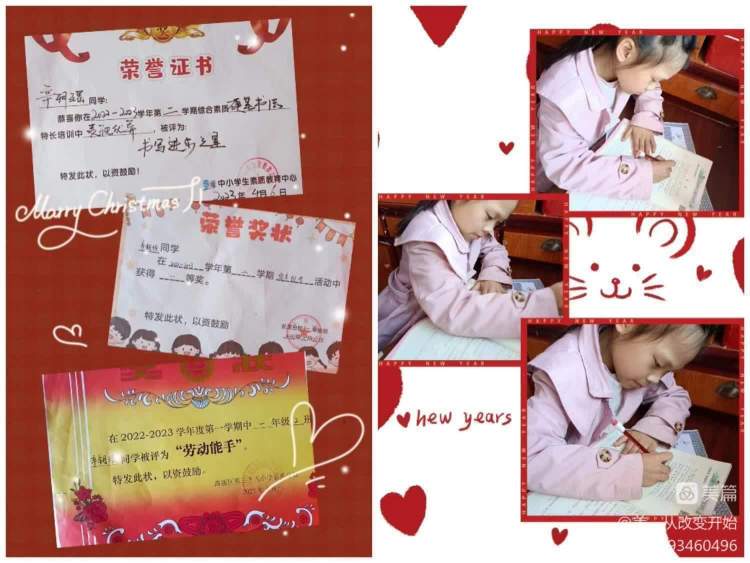 荣誉证书
同学：
恭喜你在2022-2023学年第二学期综合素质硬笔书法
特长培训中表现优异，被评为：
书写进步之星
特发此状，以资鼓励！
中小学生素质教育中心
2023年4月6日
Marry Christmas
荣誉奖状
同学
在 学年第二学期 活动中
获得二等奖。
特发此状，以资鼓励
在2022-2023学年度第一学期中二年级2班
同学被评为“劳动能手”。
特发此状，以资鼓励。
HAPPY NEW YEAR
HAPPY NEW YEAR
HAPPY NEW YEAR
HAPPY NEW YEAR
HAPPY NEW YEAR
HAPPY NEW YEAR
new years
美篇
从改变开始
93460496